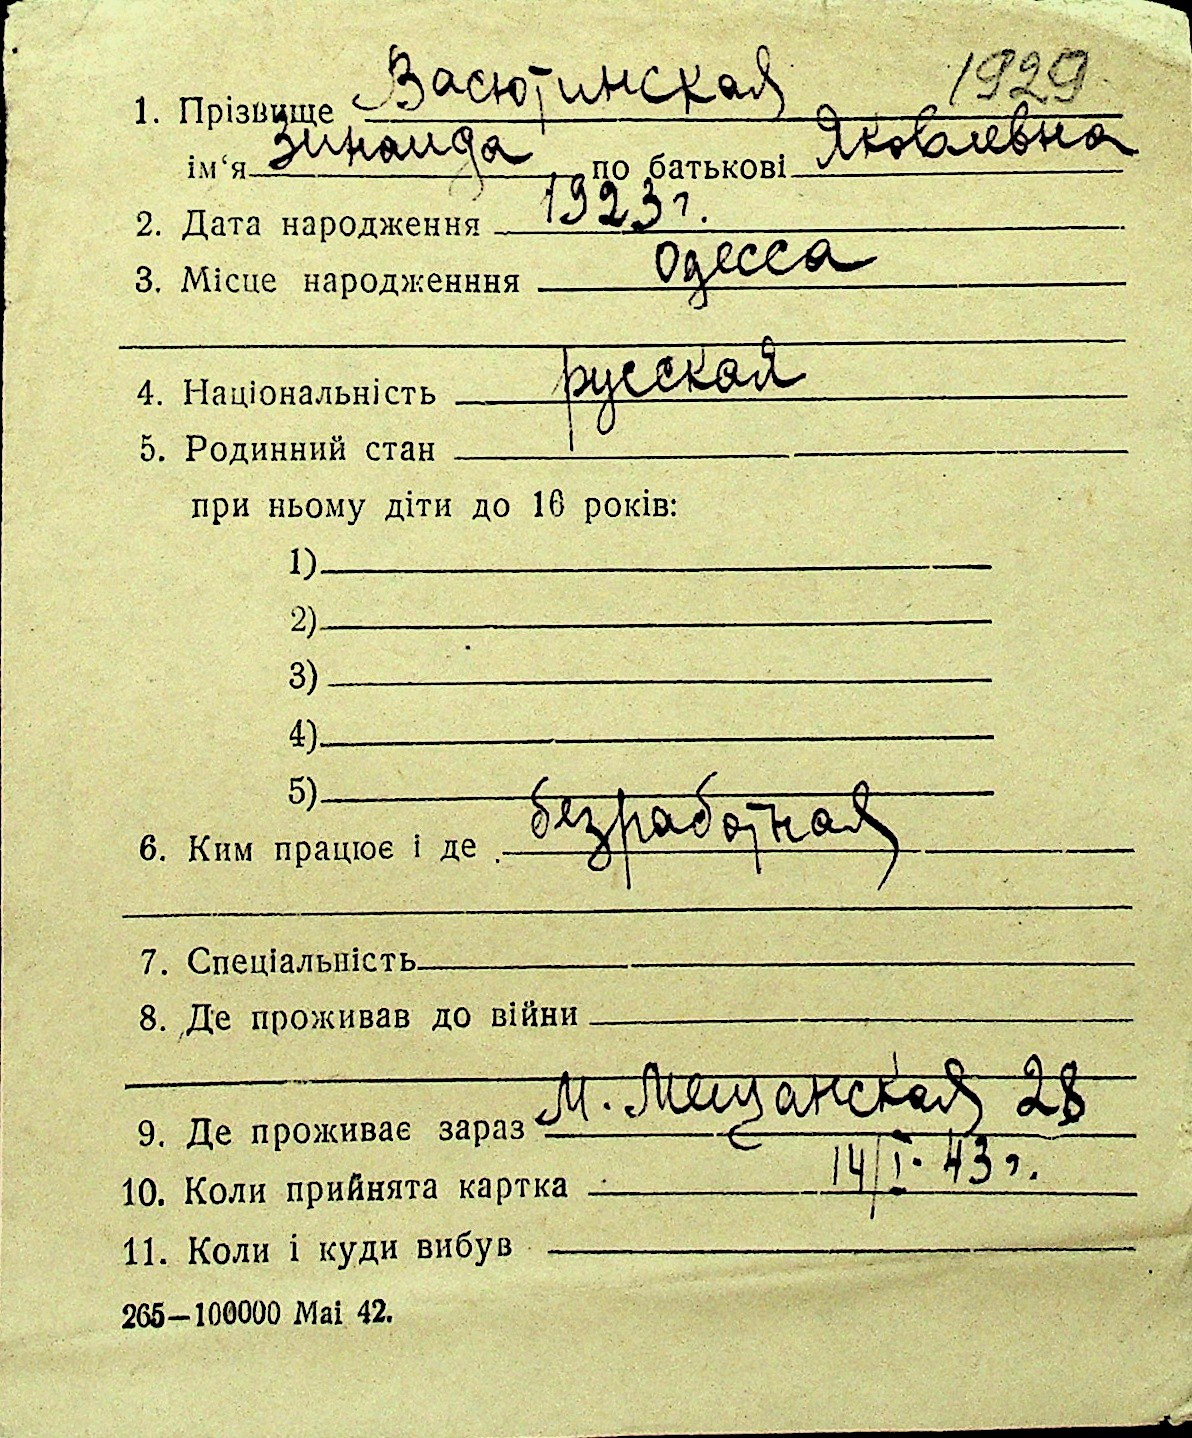 1929
1. Прізвище Васютинская
ім‘я Зинаида по батькові Яковлевна
2. Дата народження 1923 г.
3. Місце народженння Одесса
4. Національність русская
5. Родинний стан
при ньому діти до 16 років:
1)
2)
3)
4)
5)
6. Ким працює і де безработная
7. Спеціальність
8. Де проживав до війни
9. Де проживає зараз М. Мещанская 28
10. Коли прийнята картка 14/I. 43 г.
11. Коли і куди вибув
265—100000 Mai 42.